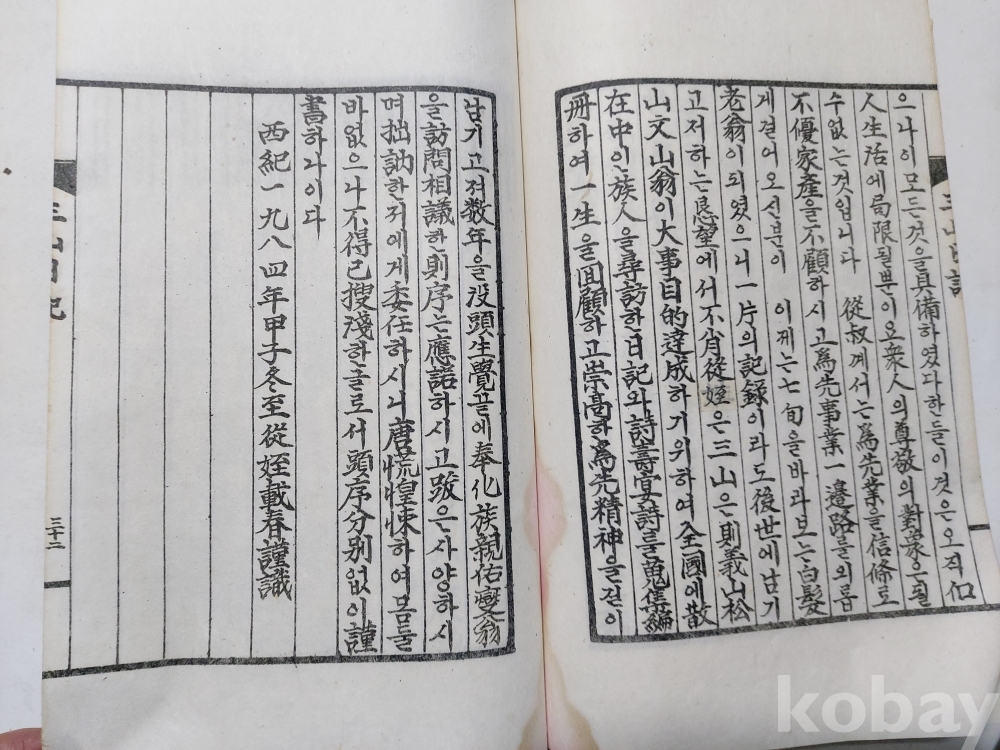 으나이모든것을具備하였다한들이것은오직個
人生活에局限될뿐이오衆人의尊敬의對象은될
수없는것입니다 從叔게서는爲先業을信條로
不優家産을不顧하시고爲先事業一邊路를외롭
게걸어오신분이 이제는七旬을바라보는白髮
老翁이되였으니一片의記錄이라도後世에남기
고저하는懇望에서不肖從姪은三山은則義山松
山文山翁이大事目的達成하기위하여全國에散
在中인族人을尋訪한日記와詩壽宴詩를蒐集編
冊하여一生을回顧하고崇高한爲先精神을길이
三山日記
남기고저数年을没頭生覺끝에奉化族親佑燮翁
을訪問相議한則序는應諾하시고跋은사양하시
며拙訥한저에게委任하시니唐慌惶悚하여몸둘
바없으나不得已搜淺한글로서頭序分別없이謹
書하나이다
西紀一九八四年甲子冬至從姪載春謹識
三山日記
三十二
kobay